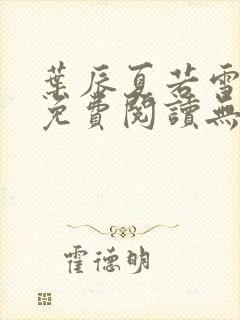 葉辰夏若雪
免費閱讀無
霍德明